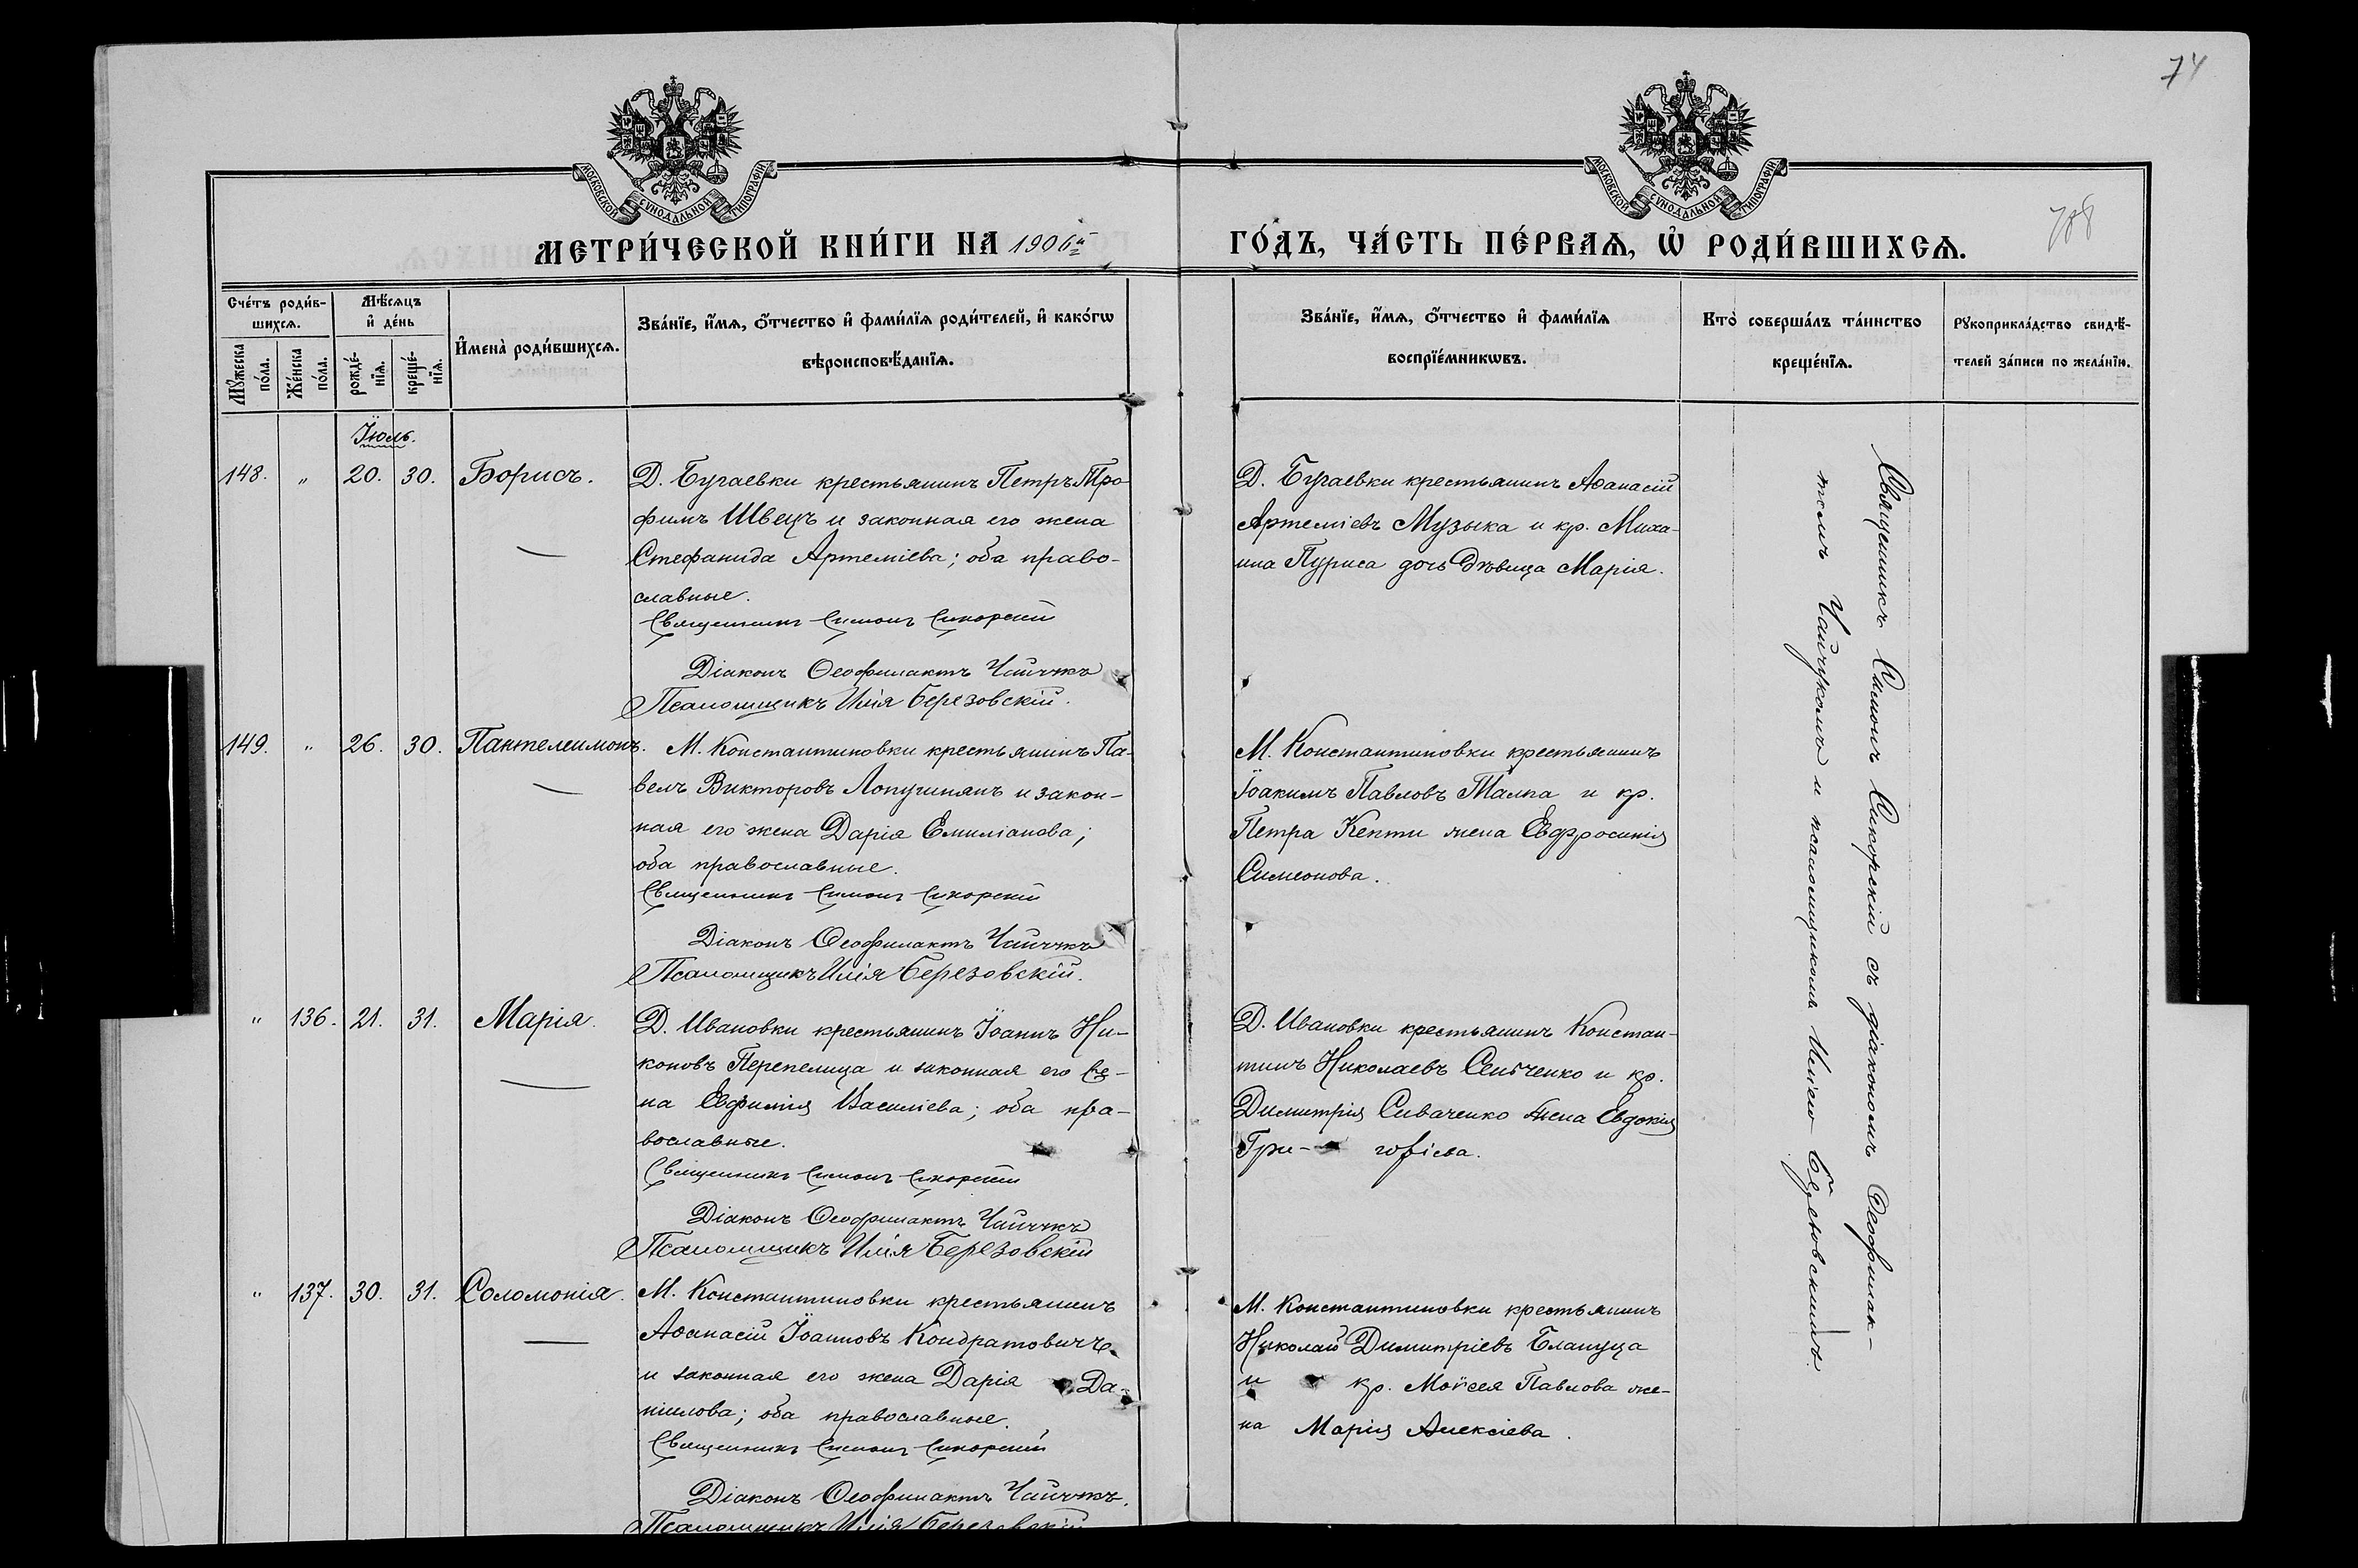 74
МОСКОВСКОЙ СѴНОДАЛЬНОЙ ТИПОГРАФІИ
МОСКОВСКОЙ СѴНОДАЛЬНОЙ ТИПОГРАФІИ
788
МЕТРИ́ЧЕСКОЙ КНИ́ГИ НА 1906й
ГО́ДЪ, ЧА́СТЬ ПЕ́РВАѦ, Ѡ҆ РОДИ́ВШИХСѦ.
Сче́тъ роди́в-
шихсѧ.
Мѣ́сѧцъ
и҆ де́нь
Мꙋ́жеска
по́ла.
Же́нска
по́ла.
рожде́-
нїѧ.
креще́-
нїѧ.
И҆мена̀ роди́вшихсѧ.
Зва́нїе, и҆́мѧ, ѻ҆́тчество и҆ фами́лїѧ роди́телей, и҆ како́гѡ
вѣроисповѣ́данїѧ.
Зва́нїе, и҆́мѧ, ѻ҆́тчество и҆ фами́лїѧ
воспрїе́мникѡвъ.
Кто̀ соверша́лъ та́инство
креще́нїѧ.
Рꙋкоприкла́дство свидѣ́-
телей за́писи по жела́нїю.
Іюль.
148. " 20. 30. Борисъ.
Д. Бугаевки крестьянинъ Петръ Тро-
фимъ Швецъ и законная его жена
Стефанида Артеміева; оба право-
славные.
Священникъ Симонъ Сикорскій
Діаконъ Ѳеофилактъ Чайчукъ
Псаломщикъ Илія Березовскій.
Д. Бугаевки крестьянинъ Аѳанасій
Артеміевъ Музыка и кр. Миха-
ила Пуриса дочь дѣвица Марія.
149. " 26. 30. Пантелеимонъ.
М. Константиновки крестьянинъ Па-
велъ Викторовъ Лопушнянъ и закон-
ная его жена Дарія Емиліанова;
оба православные.
Священникъ Симонъ Сикорскій
Діаконъ Ѳеофилактъ Чайчукъ
Псаломщикъ Илія Березовскій.
М. Константиновки крестьянинъ
Іоакимъ Павловъ Талпа и кр.
Петра Кепти жена Евфросинія
Симеонова.
" 136. 21. 31. Марія.
Д. Ивановки крестьянинъ Іоаннъ Ни-
коновъ Перепелица и законная его же-
на Евфимія Василіева; оба пра-
вославные.
Священникъ Симонъ Сикорскій
Діаконъ Ѳеофилактъ Чайчукъ
Псаломщикъ Илія Березовскій
Д. Ивановки крестьянинъ Констан-
тинъ Николаевъ и кр.
Димитрія Сиваченко жена Евдокія
Гри- горіева.
" 137. 30. 31. Соломонія.
М. Константиновки крестьянинъ
Аѳанасій Іоанновъ Кондратовичъ
и законная его жена Дарія Да-
ніилова; оба православные.
Священникъ Симонъ Сикорскій
Діаконъ Ѳеофилактъ Чайчукъ.
Псаломщикъ Илія Березовскій
М. Константиновки крестьянинъ
Николай Димитріевъ Блануца
и кр. Моисея Павлова же-
на Марія Алексіева.
Священникъ Симонъ Сикорскій съ діакономъ Ѳеофилак-
томъ Чайчукомъ и псаломщикомъ Иліею Березовскимъ.